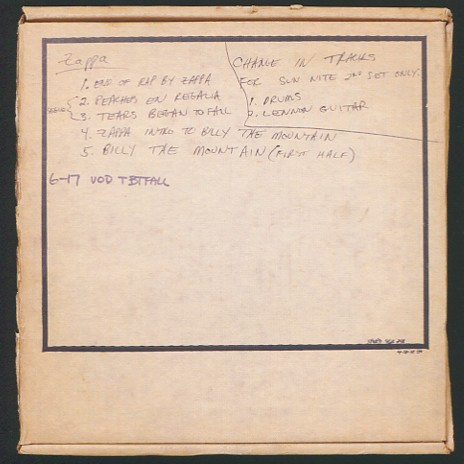 Zappa
1. END OF RAP BY ZAPPA
2. PEACHES EN REGALIA
3. TEARS BEGAN TO FALL
4. ZAPPA INTRO TO BILLY THE MOUNTAIN
5. BILLY THE MOUNTAIN (FIRST HALF)
6-17 VOD TBTFALL
CHANGE IN TRACKS
FOR SUN NITE 2ND SET ONLY:
1. DRUMS
2. LENNON GUITAR